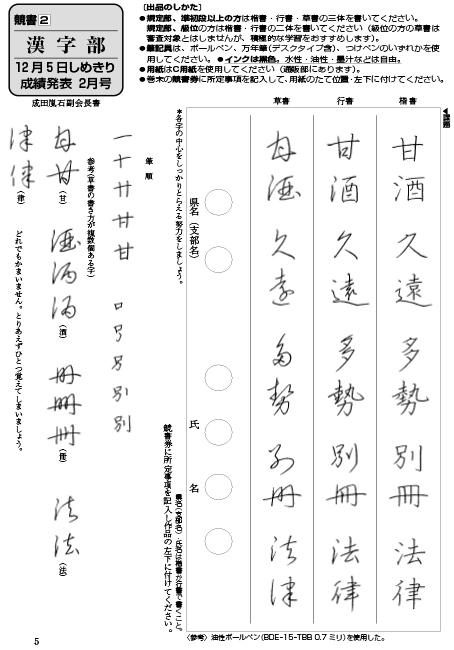 競書2
漢字部
12月5日しめきり
成績発表 2月号
成田嵐石副会長書
[出品のしかた]
●規定部、準初段以上の方は楷書・行書・草書の三体を書いてください。
規定部、級位の方は楷書・行書の二体を書いてください（級位の方の草書は
審査対象とはしませんが、積極的な学習をおすすめします）。
●筆記具は、ボールペン、万年筆(デスクタイプ含)、つけペンのいずれかを使
用してください。●インクは黒色。水性・油性・墨汁などは自由。
●用紙はC用紙を使用してください（通販部にあります）。
●巻末の競書券に所定事項を記入して、用紙のたて位置・左下に付けてください。
◀課題
楷書
甘酒 久遠 多勢 別冊 法律
行書
甘酒 久遠 多勢 別冊 法律
草書
甘酒 久遠 多勢 別冊 法律
＊各字の中心をしっかりとらえる努力をしましょう。
県名（支部名）
氏名
県名(支部名)、氏名は楷書か行書で書くこと。
競書券に所定事項を記入し作品の左下に付けてください。
筆順
一 十 廿 廿 甘
口 号 另 別 別
参考(草書の書き方が複数個ある字)
甘 甘（甘）
酒 酒 酒（酒）
冊 冊 冊（冊）
法 法（法）
律 律（律）
どれでもかまいません。とりあえずひとつ覚えてしまいましょう。
〈参考〉油性ボールペン(BDE-15-TBB 0.7ミリ)を使用した。
5